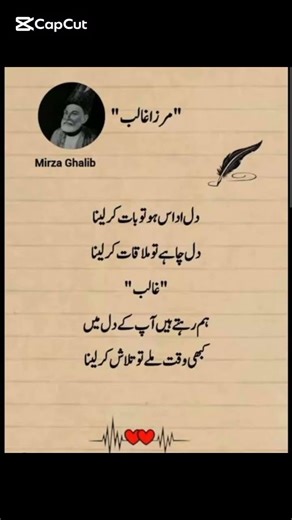 CapCut
"مرزا غالب"
Mirza Ghalib
دل اداس ہو تو بات کر لینا
دل چاہے تو ملاقات کر لینا
"غالب"
ہم رہتے ہیں آپ کے دل میں
کبھی وقت ملے تو تلاش کر لینا